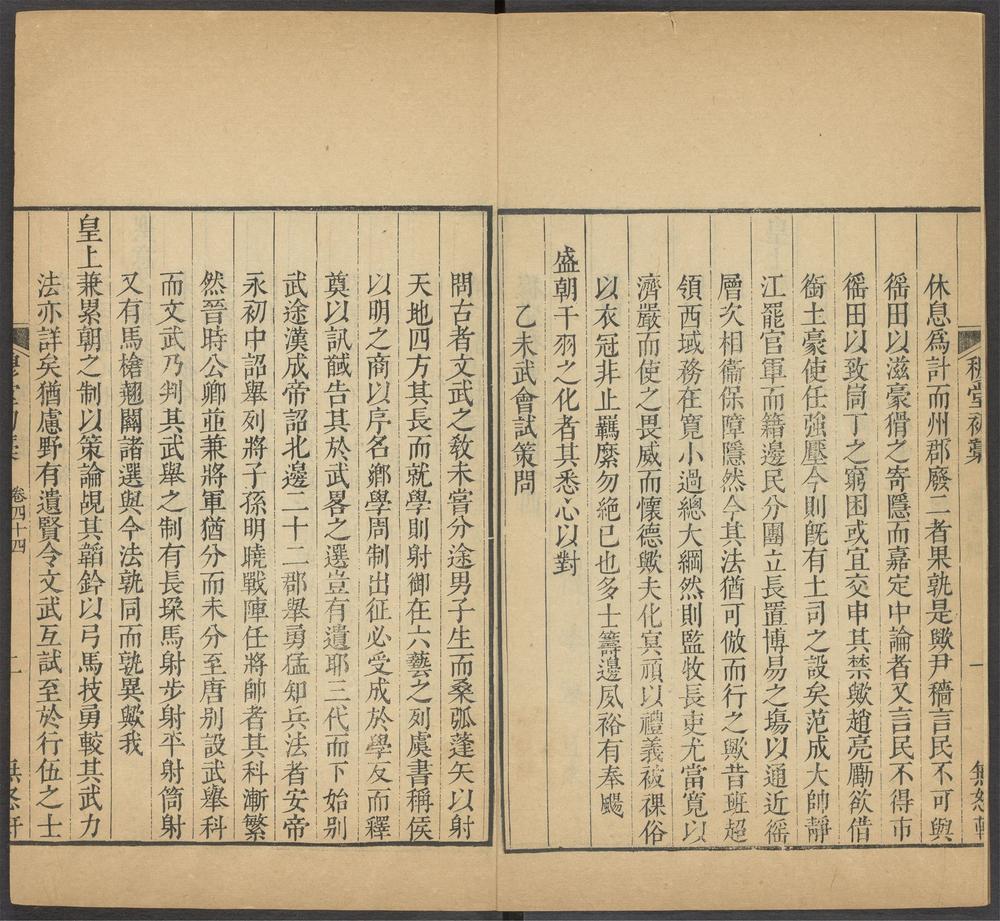 穆堂初藁
一
無怒軒
休息爲計而州郡廢二者果孰是歟尹穡言民不可與
徭田以滋豪猾之寄隱而嘉定中論者又言民不得市
徭田以致峝丁之窮困或宜交申其禁歟趙亮勵欲借
銜土豪使任強壓今則旣有土司之設矣范成大帥靜
江罷官軍而籍邊民分團立長置博易之塲以通近徭
層次相衞保障隱然今其法猶可倣而行之歟昔班超
領西域務在寛小過總大綱然則監牧長吏尤當寛以
濟嚴而使之畏威而懷德歟夫化㝠頑以禮義被祼俗
以衣冠非止羈縻勿絕已也多士籌邊夙裕有奉颺
盛朝干羽之化者其悉心以對
乙未武會試策問
問古者文武之敎未嘗分途男子生而桑弧蓬矢以射
天地四方其長而就學則射御在六藝之列虞書稱侯
以明之商以序名鄕學周制出征必受成於學反而釋
奠以訊馘告其於武畧之選豈有遺耶三代而下始別
武途漢成帝詔北邊二十二郡舉勇猛知兵法者安帝
永初中詔舉列將子孫明曉戰陣任將帥者其科漸繁
然晉時公卿並兼將軍猶分而未分至唐別設武舉科
而文武乃判其武舉之制有長垜馬射步射平射筒射
又有馬槍翹關諸選與今法孰同而孰異歟我
皇上兼累朝之制以策論覘其韜鈐以弓馬技勇較其武力
法亦詳矣猶慮野有遺賢令文武互試至於行伍之士
卷四十四
二